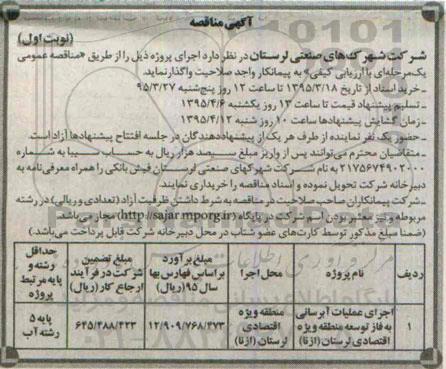 آگهی مناقصه
(نوبت اول)
شرکت شهرک‌های صنعتی لرستان در نظر دارد اجرای پروژه ذیل را از طریق «مناقصه عمومی
یک‌مرحله‌ای با ارزیابی کیفی» به پیمانکار واجد صلاحیت واگذار نماید.
- خرید اسناد از تاریخ ۱۳۹۵/۳/۱۸ تا ساعت ۱۲ روز پنج‌شنبه ۹۵/۳/۲۷
- تسلیم پیشنهاد قیمت تا ساعت ۱۳ روز یکشنبه ۱۳۹۵/۴/۶
- زمان گشایش پیشنهادها ساعت ۱۰ روز شنبه ۱۳۹۵/۴/۱۲
- حضور یک نفر نماینده از طرف هر یک از پیشنهاددهندگان در جلسه افتتاح پیشنهادها آزاد است.
- متقاضیان محترم می‌توانند پس از واریز مبلغ سیصد هزار ریال به حساب سیبا به شماره
۲۱۷۵۶۷۴۹۰۲۰۰۰ به نام شرکت شهرکهای صنعتی لرستان فیش بانکی را همراه معرفی‌نامه به
دبیرخانه شرکت تحویل نموده و اسناد مناقصه را خریداری نمایند.
- شرکت پیمانکاران صاحب صلاحیت در مناقصه به شرط داشتن ظرفیت آزاد (تعدادی و ریالی) در رشته
مربوطه و نیز معتبر بودن اسم شرکت در پایگاه (http://sajar.mporg.ir) مجاز می‌باشد.
(ضمنا مبلغ مذکور توسط کارت‌های عضو شتاب در محل دبیرخانه شرکت قابل پرداخت می‌باشد)
ردیف | نام پروژه | محل اجرا | مبلغ برآورد براساس فهارس بها سال ۹۵ (ریال) | مبلغ تضمین شرکت در فرآیند ارجاع کار (ریال) | حداقل رشته و پایه مرتبط پروژه
۱ | اجرای عملیات آبرسانی به فاز توسعه منطقه ویژه اقتصادی لرستان (ازنا) | منطقه ویژه اقتصادی لرستان (ازنا) | ۱۲/۹۰۹/۷۶۸/۴۷۳ | ۶۴۵/۴۸۸/۴۲۳ | پایه ۵ رشته آب